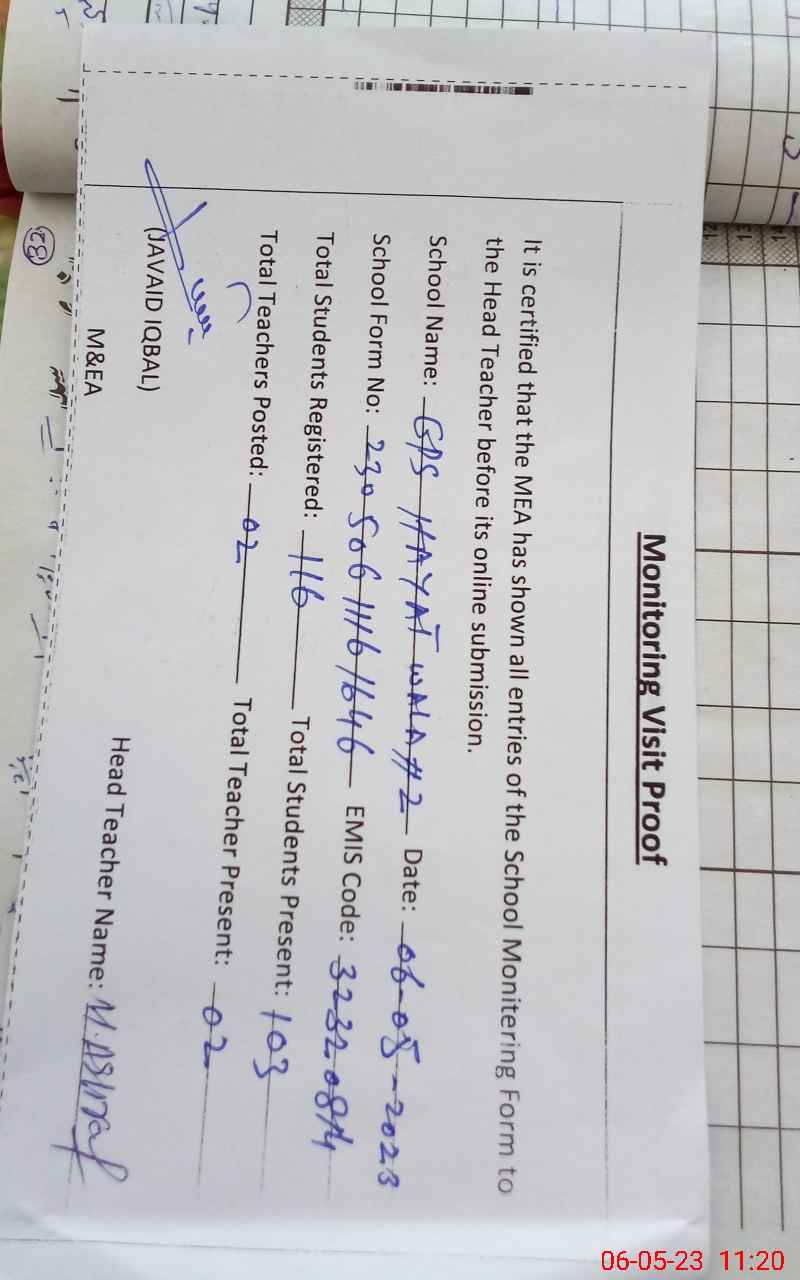 Monitoring Visit Proof
It is certified that the MEA has shown all entries of the School Monitering Form to
the Head Teacher before its online submission.
School Name: GPS HAYAT WALA #2 Date: 06-05-2023
School Form No: 230506111611646 EMIS Code:
Total Students Registered: 116 Total Students Present: 103
Total Teachers Posted: 02 Total Teacher Present: 02
(JAVAID IQBAL)
M&EA
Head Teacher Name: M. Ashraf
06-05-23 11:20